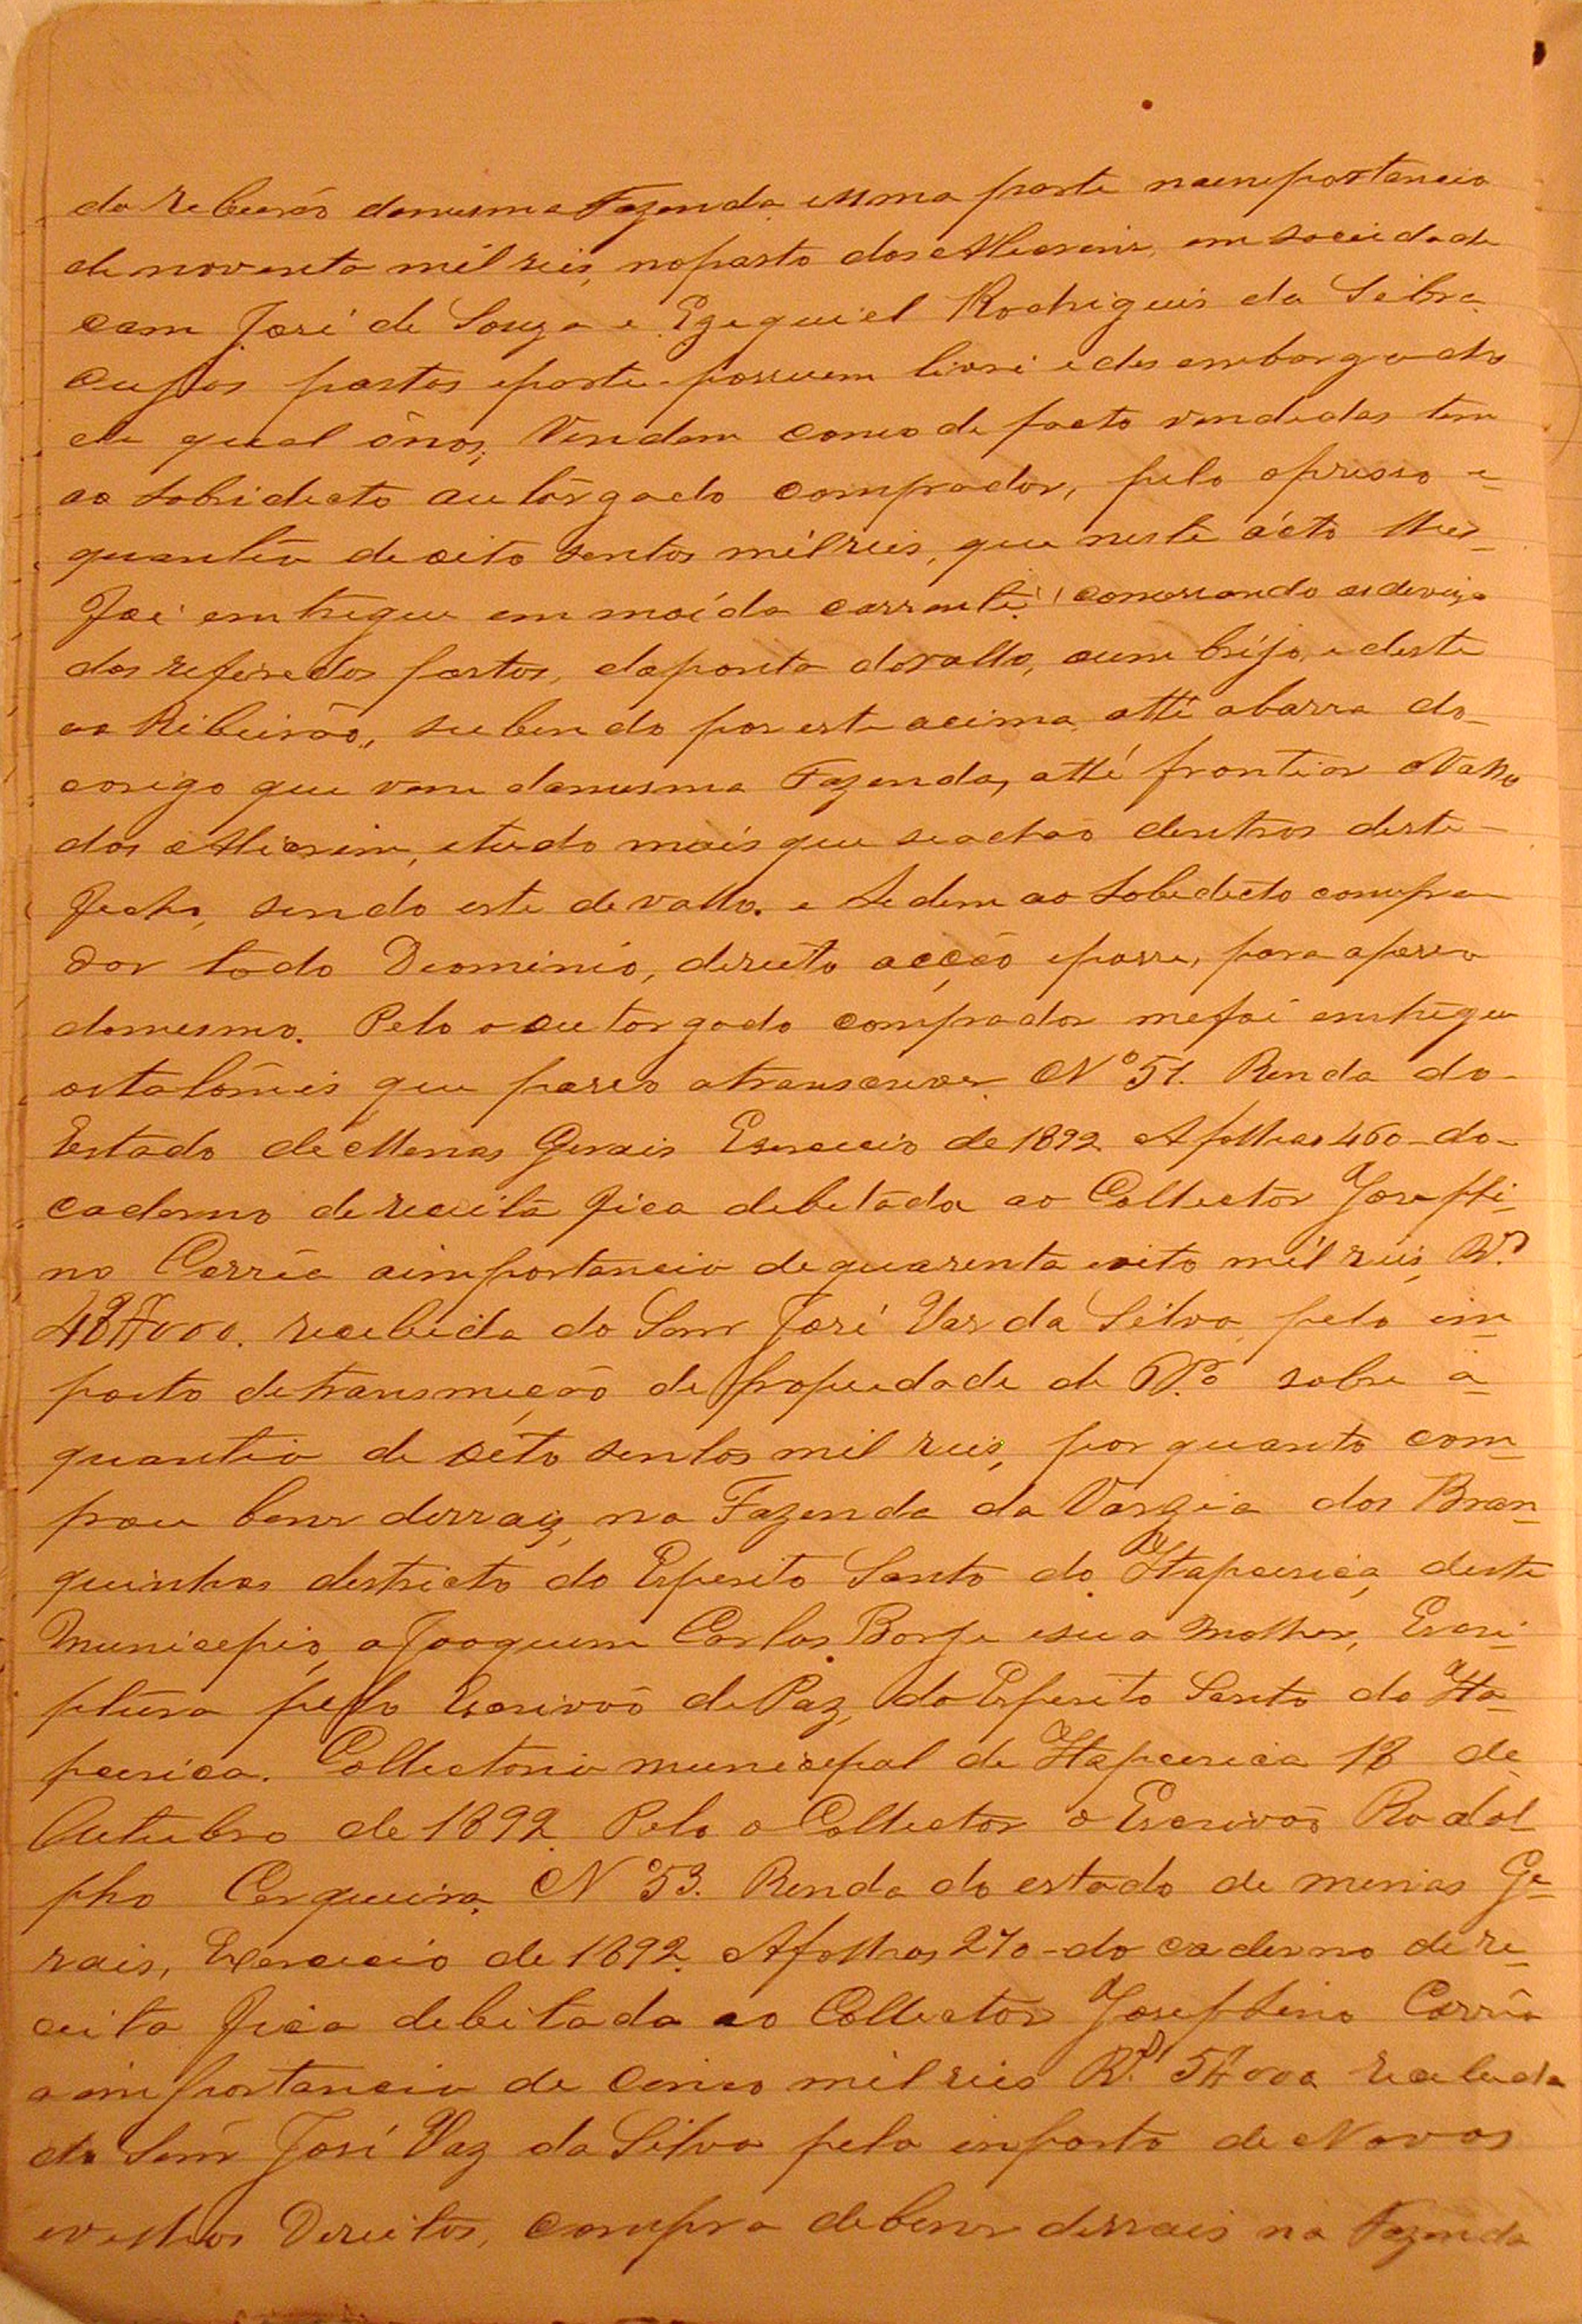 do rebeirão damesma Fazenda e uma parte naimportancia
de noventa mil reis, nopasto dos Alleorins, em sociedade
com José de Souza e Ezequiel Rodrigues da Silva
cujos pastos eparte possuem livre e desembargados
de qual ônos; Vendem como de facto vendidas tem
ao sobridicto autôrgado comprador, pelo opresso e
quantia de oito sentos mil reis, que neste ácto lhes
foi emtregue em moéda corrente; comessando asdevizas
dos referedos pastos, daponta dovallo, aum bréjo, e deste
ao Ribeirão, subindo por este acima atté abarra do
corigo que vem damesma Fazenda, atté frontiar o Vallo
dos, etudo mais que seachão dentros deste
fecho, sendo este devallo. e sedem ao sobredicto compra
dor todo Dominio, direito acção eposse, para apessoa
domesmo. Pelo o outorgado comprador mefoi emtregue
ostalōnis que passo atranscrever. Nº 51. Renda do
Estado de Menas Gerais Esercicio de 1892 Afolhas 460 do
caderno dereceita fica debitáda ao Collector Josephi
no Corrêa aimportancia dequarenta eoito mil reis, Rs
48$000. recebida do Senr José Vas da Silva, pelo im
posto detransmição de propriedade de sobre a
quantia de oito sentos mil reis, por quanto com
prou bens derraiz, na Fazenda da Vargia dos Bran
quinhos destricto do Esperito Santo do Itapecirica, deste
Municepio, a Joaquim Carlos Borge esua Molher, Escri
ptura pelo Escrivão de Paz, do Esperito Santo do Ita
pecirica. Collectoria municepal de Itapecirica 18 de
Outubro de 1892. Pelo o Collector o Escrivão Rodol
pho Cerqueira. Nº 53. Renda do estado de menias Ge
rais, Exercicio de 1892. Afolhas 270 do caderno dere
ceita fica debitada ao Collector Josephino Corrêa
aimportancia de cinco mil reis Rs 5$000 recebida
do Senr José Vaz da Silva pelo imposto de Novos
evelhos Direitos, compra debens derrais na Fazenda